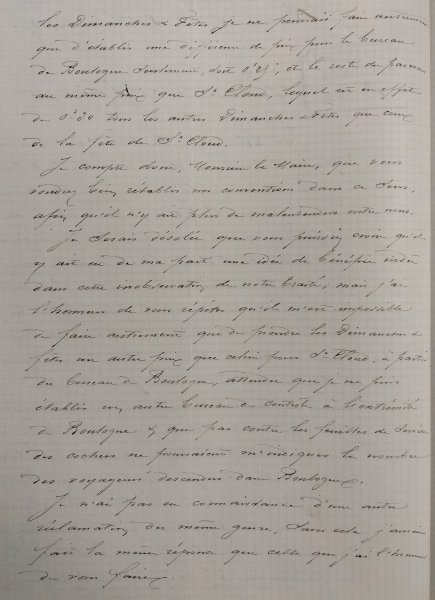 les Dimanches & Fêtes je ne pourrais faire autrement
que d'établir une différence de prix pour le bureau
de Boulogne seulement, soit 0f25, et le reste du parcours
au même prix que St Cloud, lequel est en effet
de 0f50 tous les autres Dimanches & Fêtes que ceux
de la fête de St Cloud.
Je compte donc, Monsieur le Maire, que vous
voudrez bien rétablir nos conventions dans ce sens,
afin qu'il n'y ait plus de malentendu entre nous.
Je serais désolée que vous puissiez croire qu'il
y ait eu de ma part une idée de bénéfice
dans cette inobservation de notre traité, mais j'ai
l'honneur de vous répéter qu'il m'est impossible
de faire autrement que de prendre les Dimanches &
fêtes un autre prix que celui pour St Cloud, à partir
du bureau de Boulogne, attendu que je ne puis
établir un autre bureau de contrôle à l'extrémité
de Boulogne & que par contre les feuilles de
des cochers ne pourraient m'indiquer le nombre
des voyageurs descendus dans Boulogne.
Je n'ai pas eu connaissance d'une autre
réclamation du même genre, sans cela j'aurais
fait la même réponse que celle que j'ai l'honneur
de vous faire.